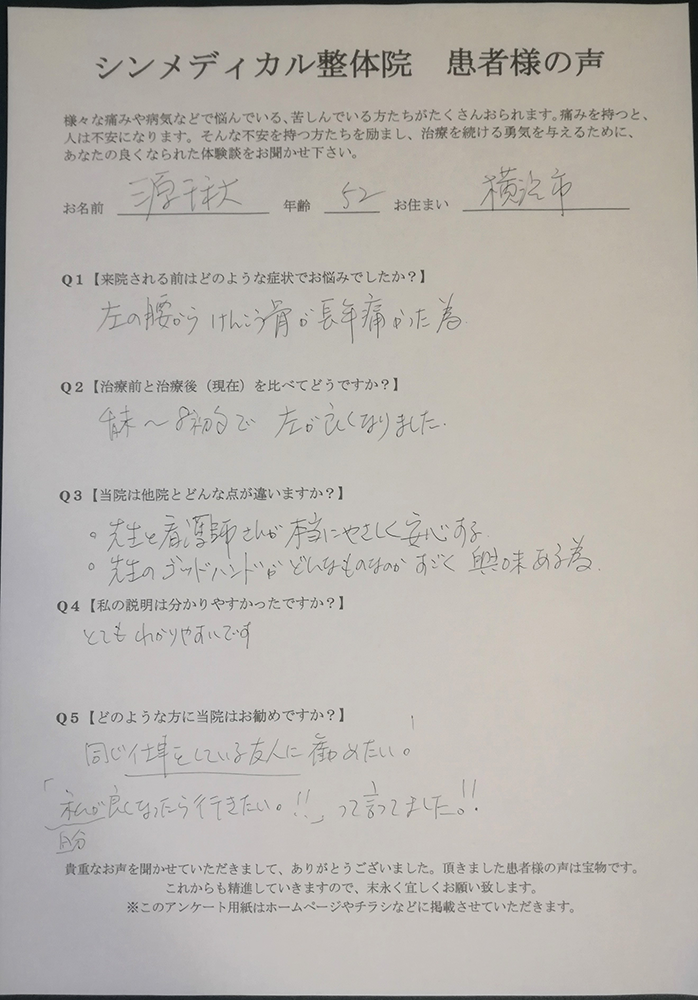 シンメディカル整体院　患者様の声
様々な痛みや病気などで悩んでいる、苦しんでいる方たちがたくさんおられます。痛みを持つと、
人は不安になります。そんな不安を持つ方たちを励まし、治療を続ける勇気を与えるために、
あなたの良くなられた体験談をお聞かせ下さい。
お名前　年齢　52　お住まい　横浜市
Q1【来院される前はどのような症状でお悩みでしたか？】
左の腰から けんこう骨が長年痛かった為.
Q2【治療前と治療後（現在）を比べてどうですか？】
で 左が良くなりました.
Q3【当院は他院とどんな点が違いますか？】
・先生と看護師さんが本当にやさしく安心する.
・先生のゴッドハンドがどんなものなのか すごく 興味ある為.
Q4【私の説明は分かりやすかったですか？】
とても わかりやすいです
Q5【どのような方に当院はお勧めですか？】
同じ仕事をしている友人に勧めたい!
「私が良くなったら行きたい。!!」って言ってました。!!
自分
貴重なお声を聞かせていただきまして、ありがとうございました。頂きました患者様の声は宝物です。
これからも精進していきますので、末永く宜しくお願い致します。
※このアンケート用紙はホームページやチラシなどに掲載させていただきます。